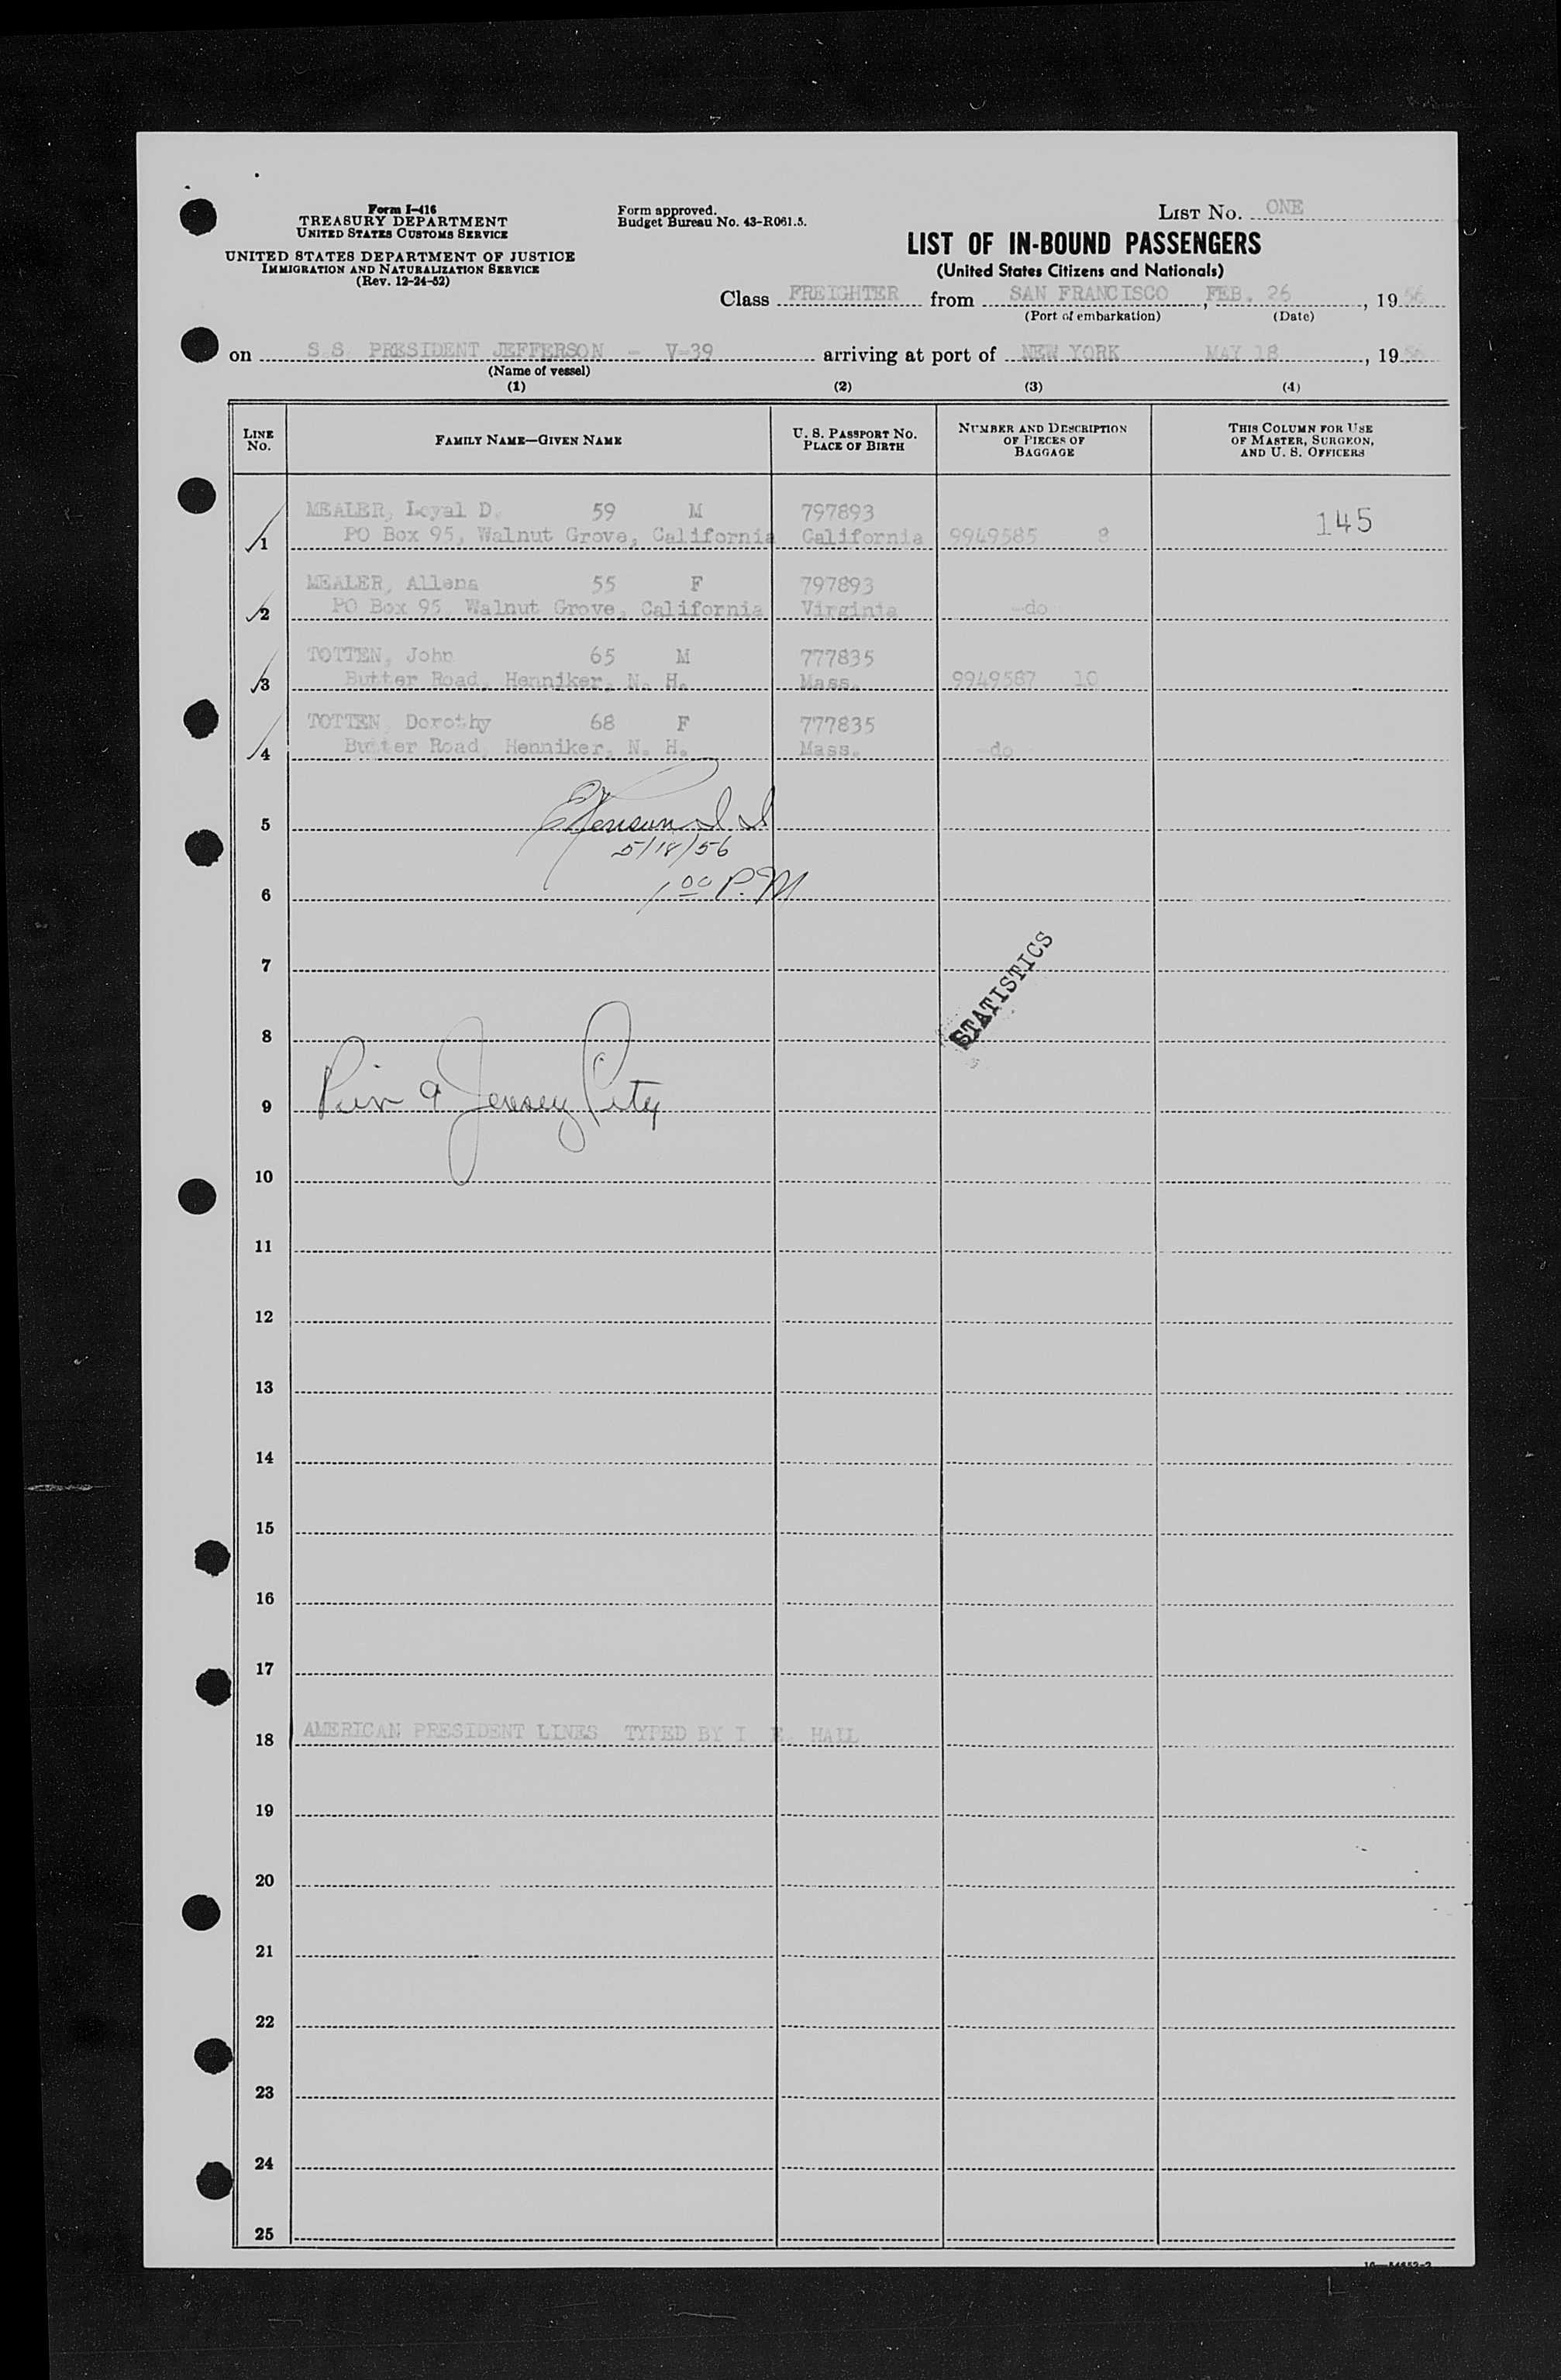 Form I-416
TREASURY DEPARTMENT
UNITED STATES CUSTOMS SERVICE
UNITED STATES DEPARTMENT OF JUSTICE
IMMIGRATION AND NATURALIZATION SERVICE
(Rev. 12-24-52)
Form approved.
Budget Bureau No. 43-R061.5.
LIST No. ONE
LIST OF IN-BOUND PASSENGERS
(United States Citizens and Nationals)
Class FREIGHTER from SAN FRANCISCO, FEB. 26, 1956
(Port of embarkation) (Date)
on S.S. PRESIDENT JEFFERSON - V-39 arriving at port of NEW YORK MAY 18, 1956
(Name of vessel)
(1) (2) (3) (4)
LINE NO. FAMILY NAME—GIVEN NAME U. S. PASSPORT NO. PLACE OF BIRTH NUMBER AND DESCRIPTION OF PIECES OF BAGGAGE THIS COLUMN FOR USE OF MASTER, SURGEON, AND U. S. OFFICERS
MEALER, Loyal D. 59 M 797893 145
1 PO Box 95, Walnut Grove, California California 9949585 8
MEALER, Allena 55 F 797893
2 PO Box 95, Walnut Grove, California Virginia -do
TOTTEN, John 65 M 777835
3 Butter Road, Henniker, N. H. Mass. 9949587 10
TOTTEN, Dorothy 68 F 777835
4 Butter Road, Henniker, N. H. Mass. -do
5
5/18/56
6 1 00 P.M
7
STATISTICS
8
9 Pier 9 Jersey City
10
11
12
13
14
15
16
17
18 AMERICAN PRESIDENT LINES TYPED BY I. E. HALL
19
20
21
22
23
24
25